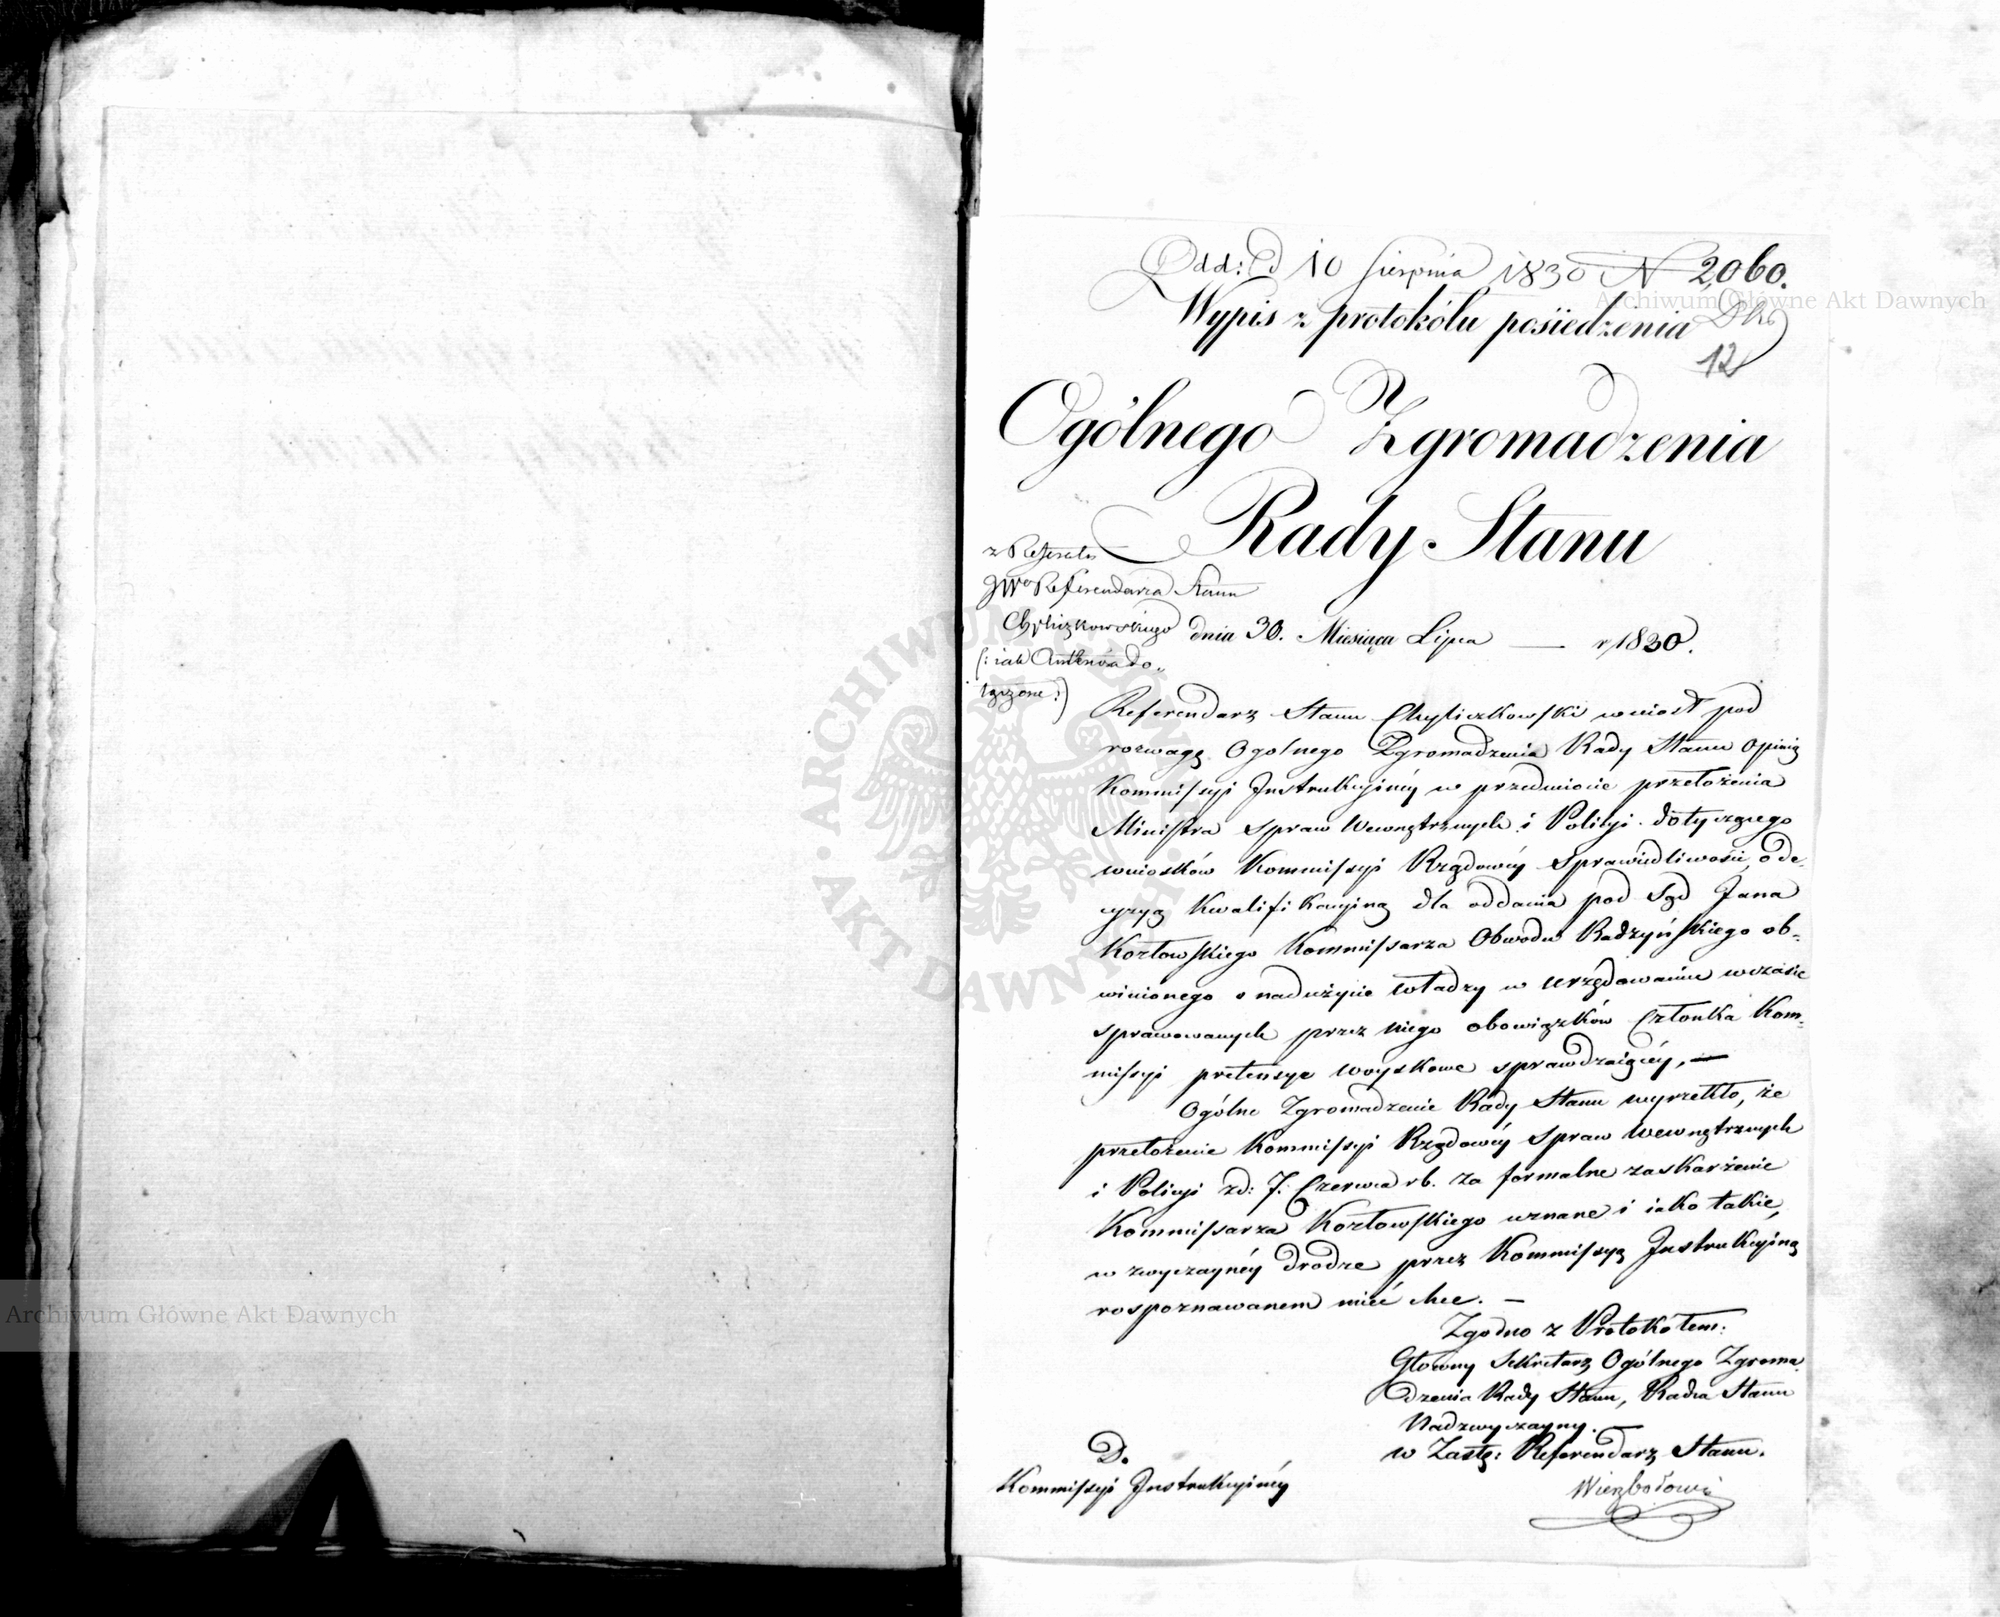 Odd: d 10 Sierpnia 1830 N 2060.
Wypis z protokółu posiedzenia
12
Ogólnego Zgromadzenia
Rady Stanu
z Referatu
JWo Referendarza Stanu
Chyliczkowskiego dnia 30. Miesiąca Lipca — r 1830.
(: iak Anteriora do„
łączone :)
Referendarz Stanu Chyliczkowski wniosł pod
rozwagę Ogolnego Zgromadzenia Rady Stanu opinią
Kommissyi Instrukcyinéy w przedmiocie przełożenia
Ministra Spraw Wewnętrznych i Policyi dotyczącego
wniosków Kommissyi Rządowéy Sprawiedliwości, o de-
cyzyą kwalifikacyiną dla oddania pod Sąd Jana
Kozłowskiego Kommissarza Obwodu Radzyńskiego ob-
winionego o nadużycie władzy w urzędowaniu w czasie
sprawowanych przez niego obowiązków Członka Kom-
missyi pretensye woyskowe sprawdzaiącéy. —
Ogólne Zgromadzenie Rady Stanu wyrzekło, że
przełożenie Kommissyi Rządowéy Spraw Wewnętrznych
i Policyi zd: 7. Czerwca rb. za formalne zaskarżenie
Kommissarza Kozłowskiego uznane i iako takie,
w zwyczaynéy drodze przez Kommissyą Instrukcyiną
rospoznawanem mieć chce. —
Zgodno z Protokołem:
Głowny Sekretarz Ogólnego Zgroma
dzenia Rady Stanu, Radca Stanu
Nadzwyczayny.
w Zastę: Referendarz Stanu.
D.
Kommissyi Instrukcyinéy
Wierzbołowi
Archiwum Główne Akt Dawnych
Archiwum Główne Akt Dawnych
ARCHIWUM GŁÓWNE AKT DAWNYCH